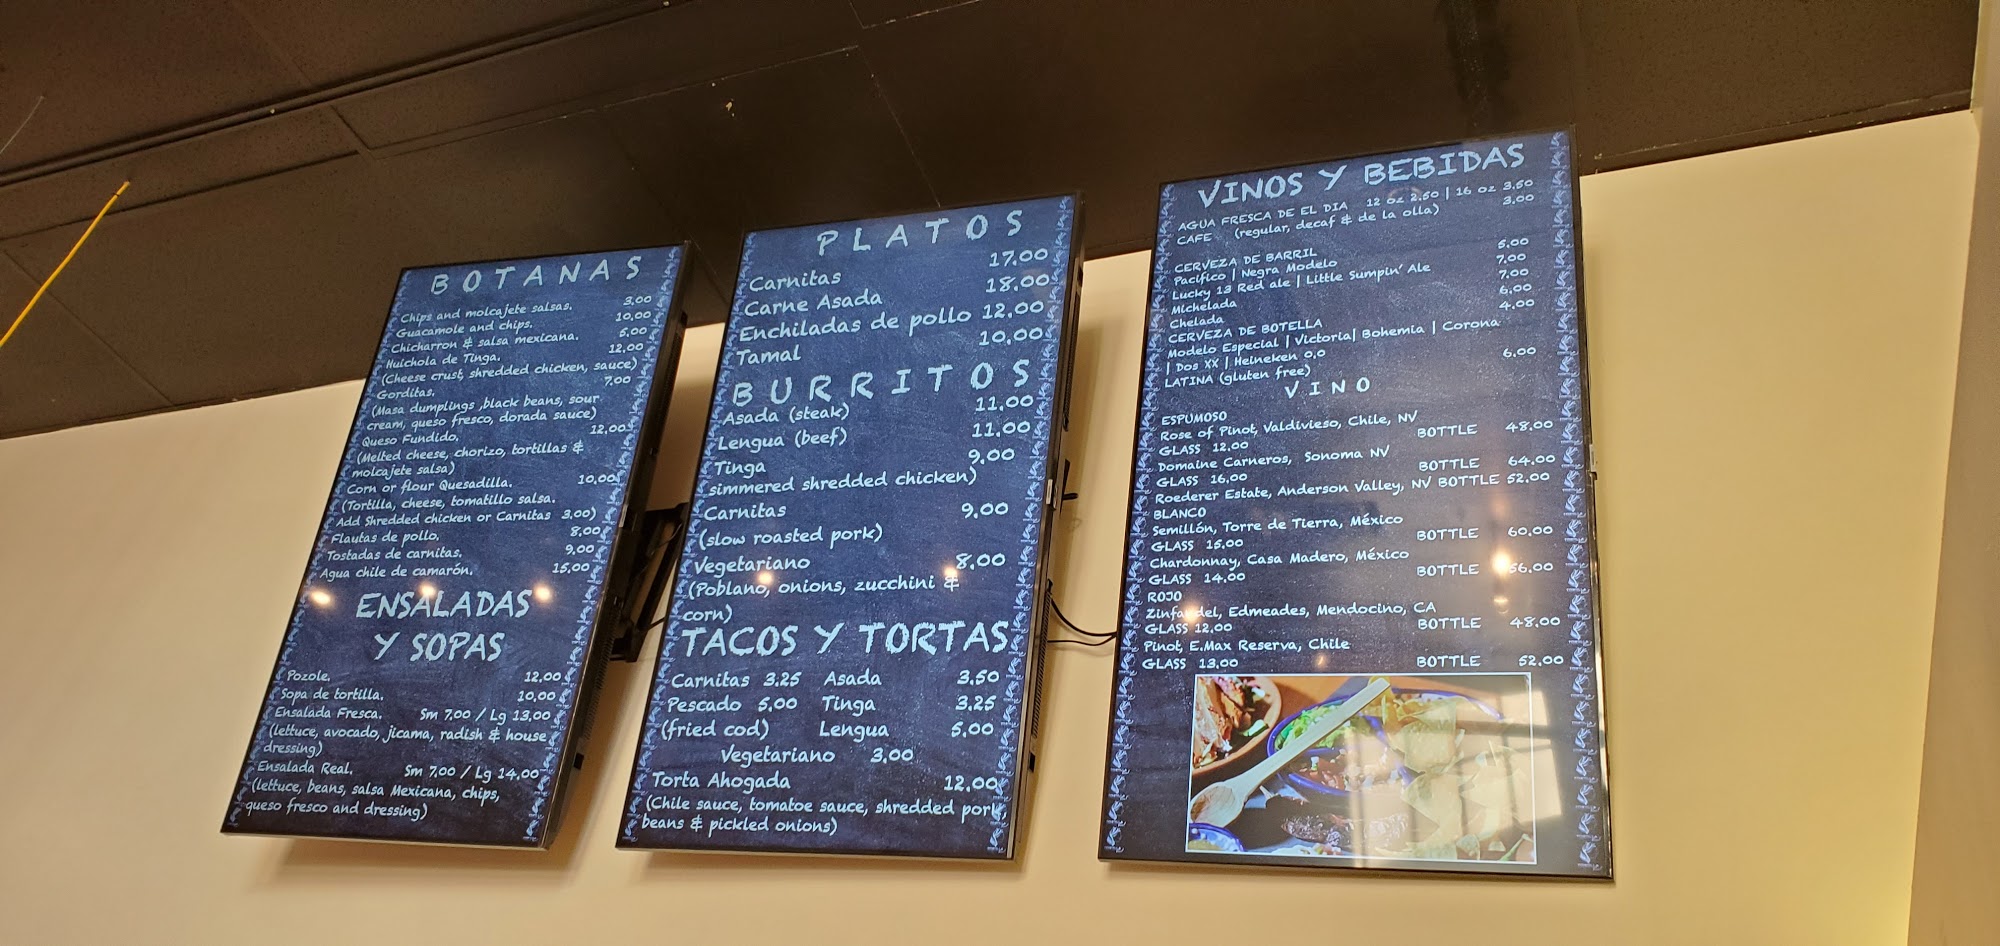 BOTANAS
Chips and molcajete salsas. 3.00
Guacamole and chips. 10.00
Chicharron & salsa mexicana. 5.00
Huichola de Tinga. 12.00
(Cheese crust, shredded chicken, sauce)
Gorditas. 7.00
(Masa dumplings ,black beans, sour
cream, queso fresco, dorada sauce)
Queso Fundido. 12.00
(Melted cheese, chorizo, tortillas &
molcajete salsa)
Corn or flour Quesadilla. 10.00
(Tortilla, cheese, tomatillo salsa.
Add Shredded chicken or Carnitas 3.00)
Flautas de pollo. 8.00
Tostadas de carnitas. 9.00
Agua chile de camarón. 15.00
ENSALADAS
Y SOPAS
Pozole. 12.00
Sopa de tortilla. 10.00
Ensalada Fresca. Sm 7.00 / Lg 13.00
(lettuce, avocado, jicama, radish & house
dressing)
Ensalada Real. Sm 7.00 / Lg 14.00
(lettuce, beans, salsa Mexicana, chips,
queso fresco and dressing)
PLATOS
Carnitas 17.00
Carne Asada 18.00
Enchiladas de pollo 12.00
Tamal 10.00
BURRITOS
Asada (steak) 11.00
Lengua (beef) 11.00
Tinga 9.00
simmered shredded chicken)
Carnitas 9.00
(slow roasted pork)
Vegetariano 8.00
(Poblano, onions, zucchini &
corn)
TACOS Y TORTAS
Carnitas 3.25 Asada 3.50
Pescado 5.00 Tinga 3.25
(fried cod) Lengua 5.00
Vegetariano 3.00
Torta Ahogada 12.00
(Chile sauce, tomatoe sauce, shredded pork,
beans & pickled onions)
VINOS Y BEBIDAS
AGUA FRESCA DE EL DIA 12 oz 2.50 | 16 oz 3.50
CAFE (regular, decaf & de la olla) 3.00
CERVEZA DE BARRIL
Pacifico | Negra Modelo 5.00
Lucky 13 Red ale | Little Sumpin' Ale 7.00
Michelada 7.00
Chelada 6.00
CERVEZA DE BOTELLA 4.00
Modelo Especial | Victoria| Bohemia | Corona
| Dos XX | Heineken 0,0
LATINA (gluten free) 6.00
VINO
ESPUMOSO
Rose of Pinot, Valdivieso, Chile, NV
GLASS 12.00 BOTTLE 48.00
Domaine Carneros, Sonoma NV
GLASS 16.00 BOTTLE 64.00
Roederer Estate, Anderson Valley, NV BOTTLE 52.00
BLANCO
Semillón, Torre de Tierra, México
GLASS 15.00 BOTTLE 60.00
Chardonnay, Casa Madero, México
GLASS 14.00 BOTTLE 56.00
ROJO
Zinfandel, Edmeades, Mendocino, CA
GLASS 12.00 BOTTLE 48.00
Pinot, E.Max Reserva, Chile
GLASS 13.00 BOTTLE 52.00